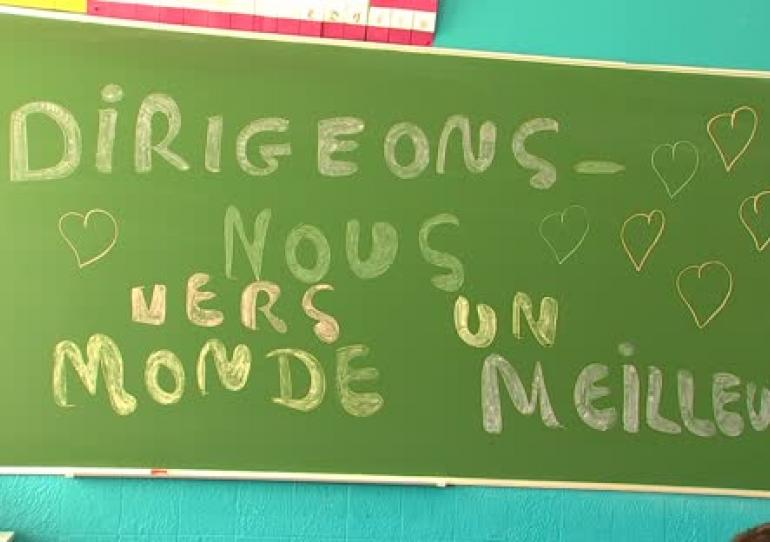 DiRIGEONS-
NOUS
VERS UN
MONDE MEiLLEU